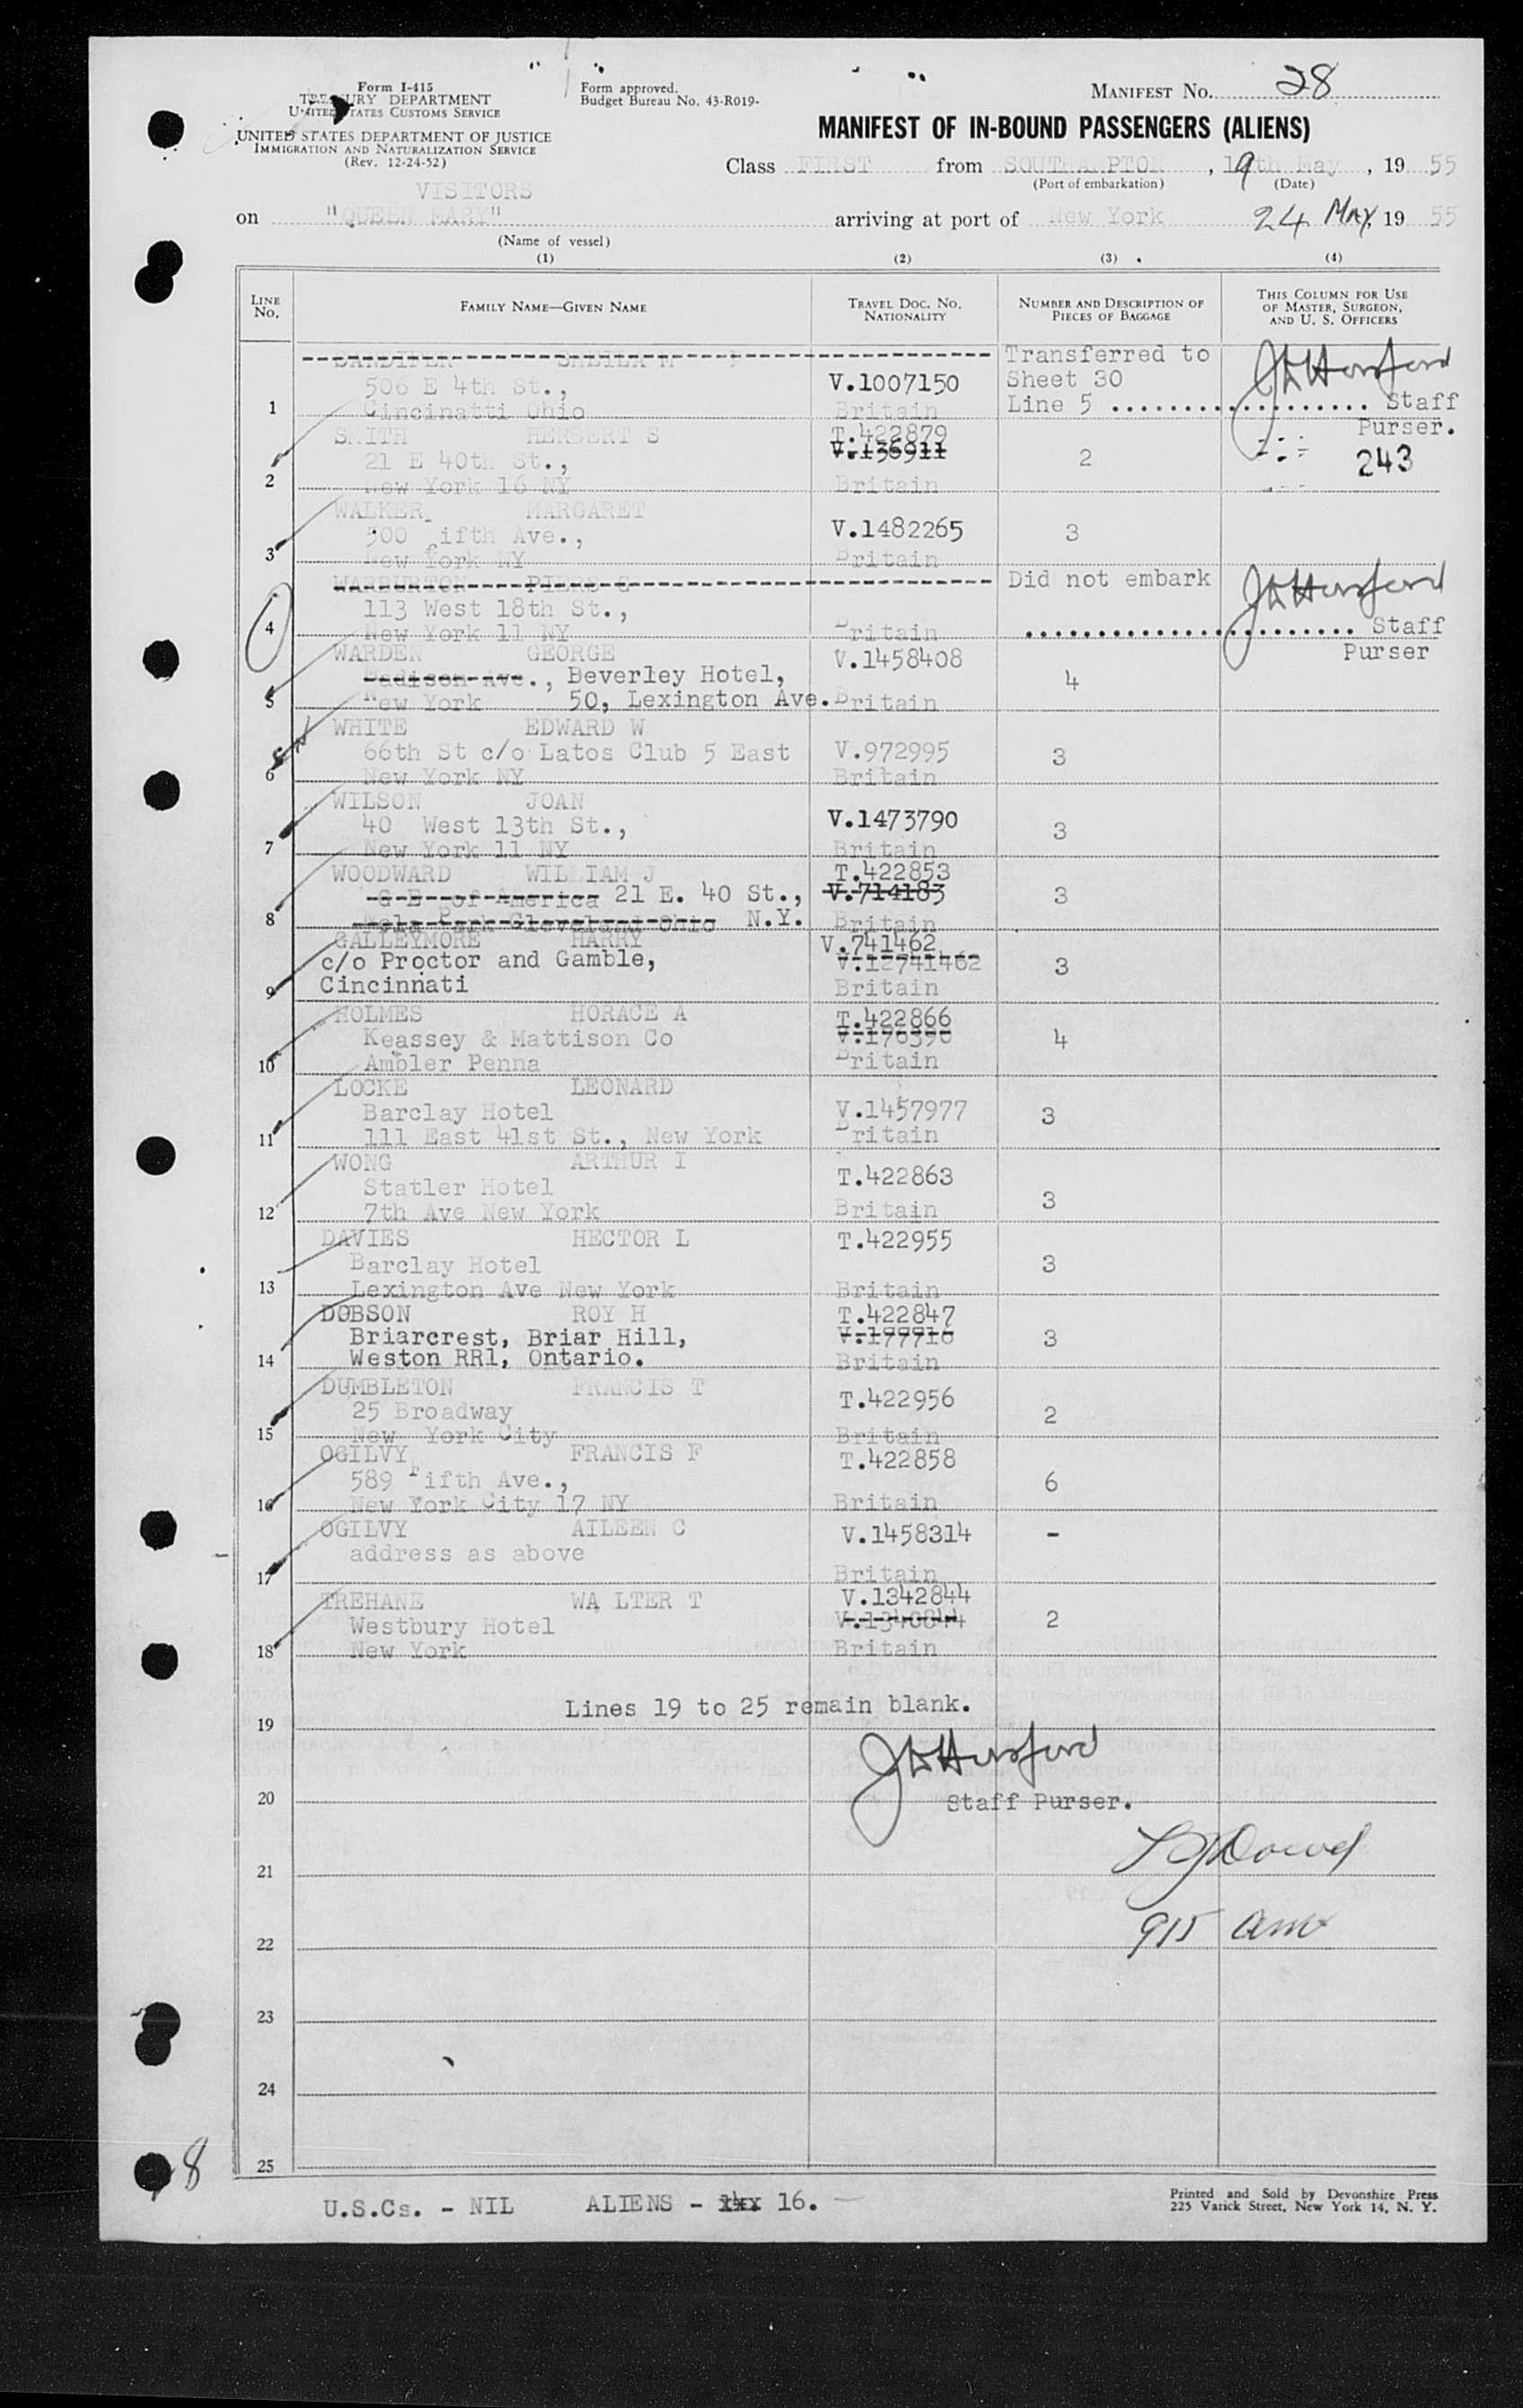 Form I-415
TREASURY DEPARTMENT
UNITED STATES CUSTOMS SERVICE
UNITED STATES DEPARTMENT OF JUSTICE
IMMIGRATION AND NATURALIZATION SERVICE
(Rev. 12-24-52)
Form approved.
Budget Bureau No. 43-R019-
MANIFEST No. 28
MANIFEST OF IN-BOUND PASSENGERS (ALIENS)
Class FIRST from SOUTHAMPTON, 19th May, 19 55
(Port of embarkation) (Date)
VISITORS
on "QUEEN MARY" arriving at port of New York 24 MAY, 19 55
(Name of vessel)
(1) (2) (3) (4)
LINE No. FAMILY NAME—GIVEN NAME TRAVEL DOC. NO. NATIONALITY NUMBER AND DESCRIPTION OF PIECES OF BAGGAGE THIS COLUMN FOR USE OF MASTER, SURGEON, AND U. S. OFFICERS
SANDIFER SHEILA M Transferred to
506 E 4th St., V.1007150 Sheet 30
1 Cincinatti Ohio Britain Line 5 Staff
Purser.
SMITH HERBERT S T.422879
21 E 40th St., V.136911 2 243
2 New York 16 NY Britain
WALKER MARGARET
500 Fifth Ave., V.1482265 3
3 New York NY Britain
WARBURTON PIERS G Did not embark
113 West 18th St.,
4 New York 11 NY Britain Staff
Purser
WARDEN GEORGE V.1458408
Madison Ave., Beverley Hotel, 4
5 New York 50, Lexington Ave. Britain
WHITE EDWARD W
66th St c/o Latos Club 5 East V.972995 3
6 New York NY Britain
WILSON JOAN
40 West 13th St., V.1473790 3
7 New York 11 NY Britain
WOODWARD WILLIAM J T.422853
G E of America 21 E. 40 St., V.714183 3
8 Nela Park Cleveland Ohio N.Y. Britain
GALLEYMORE HARRY V.741462
c/o Proctor and Gamble, V.12741462 3
9 Cincinnati Britain
HOLMES HORACE A T.422866
Keassey & Mattison Co V.176396 4
10 Ambler Penna Britain
LOCKE LEONARD
Barclay Hotel V.1457977 3
11 111 East 41st St., New York Britain
WONG ARTHUR I
Statler Hotel T.422863 3
12 7th Ave New York Britain
DAVIES HECTOR L T.422955
Barclay Hotel 3
13 Lexington Ave New York Britain
DOBSON ROY H T.422847
Briarcrest, Briar Hill, V.177716 3
14 Weston RR1, Ontario. Britain
DUMBLETON FRANCIS T
25 Broadway T.422956 2
15 New York City Britain
OGILVY FRANCIS F T.422858
589 Fifth Ave., 6
16 New York City 17 NY Britain
OGILVY AILEEN C V.1458314 -
address as above
17 Britain
TREHANE WALTER T V.1342844
Westbury Hotel V.1340844 2
18 New York Britain
Lines 19 to 25 remain blank.
19
20 Staff Purser.
21
915 am
22
23
24
25
8
U.S.Cs. - NIL ALIENS - 14x 16.
Printed and Sold by Devonshire Press
225 Varick Street, New York 14, N. Y.